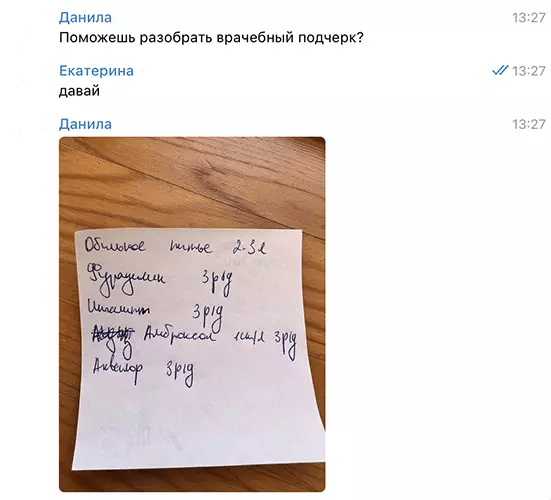 Данила 13:27
Поможешь разобрать врачебный подчерк?
Екатерина 13:27
давай
Данила 13:27
Обильное питье 2-3л
Фурацилин 3 р/д
Ингалипт 3 р/д
Амброксол 1 ст/л 3 р/д
Аквалор 3 р/д